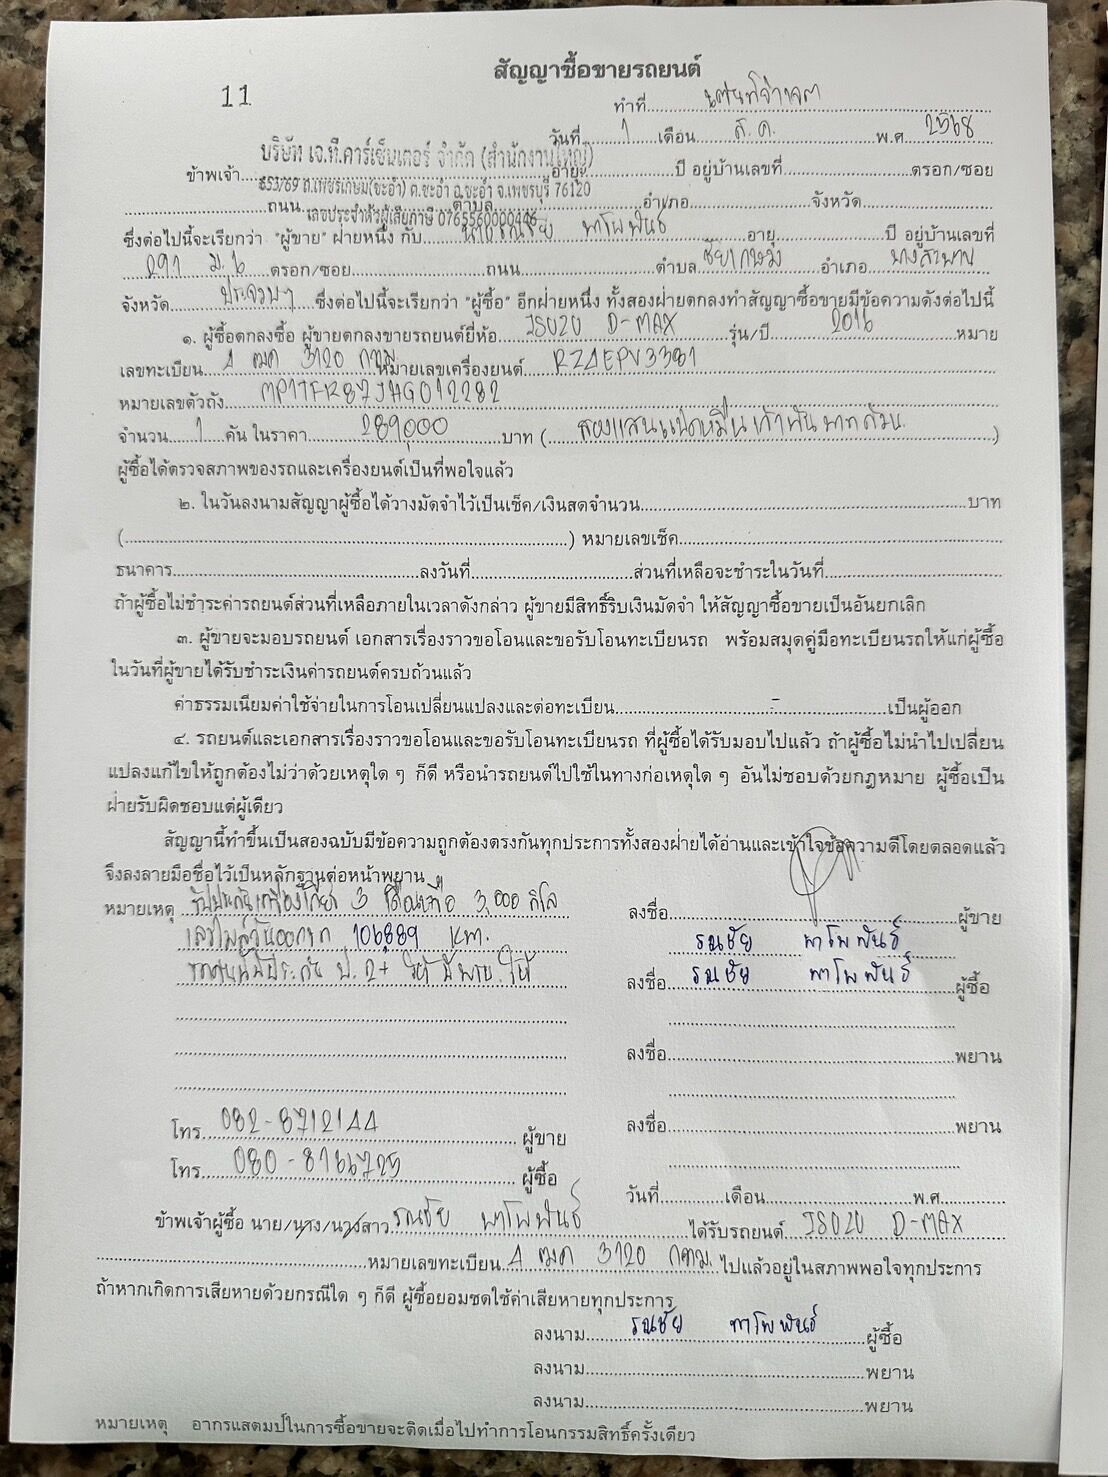 สัญญาซื้อขายรถยนต์
11
ทำที่
วันที่ 1 เดือน ส.ค. พ.ศ 2568
บริษัท เจ.ที.คาร์เซ็นเตอร์ จำกัด (สำนักงานใหญ่)
ข้าพเจ้า อายุ ปี อยู่บ้านเลขที่ ตรอก/ซอย
653/69 ถ.เพชรเกษม(ชะอำ) ต.ชะอำ อ.ชะอำ จ.เพชรบุรี 76120
ถนน ตำบล อำเภอ จังหวัด
เลขประจำตัวผู้เสียภาษี
ซึ่งต่อไปนี้จะเรียกว่า "ผู้ขาย" ฝ่ายหนึ่ง กับ นายรณชัย พาโพพันธ์ อายุ ปี อยู่บ้านเลขที่
291 ม.6 ตรอก/ซอย ถนน ตำบล ชัยเกษม อำเภอ บางสะพาน
จังหวัด ประจวบฯ ซึ่งต่อไปนี้จะเรียกว่า "ผู้ซื้อ" อีกฝ่ายหนึ่ง ทั้งสองฝ่ายตกลงทำสัญญาซื้อขายมีข้อความดังต่อไปนี้
๑. ผู้ซื้อตกลงซื้อ ผู้ขายตกลงขายรถยนต์ยี่ห้อ ISUZU D-MAX รุ่น/ปี 2016 หมาย
เลขทะเบียน 4 ฒค 3120 กทม หมายเลขเครื่องยนต์ RZ4EPV3381
หมายเลขตัวถัง MP1TFR87JHG012282
จำนวน 1 คัน ในราคา 289,000 บาท ( สองแสนแปดหมื่นเก้าพันบาทถ้วน )
ผู้ซื้อได้ตรวจสภาพของรถและเครื่องยนต์เป็นที่พอใจแล้ว
๒. ในวันลงนามสัญญาผู้ซื้อได้วางมัดจำไว้เป็นเช็ค/เงินสดจำนวน บาท
( ) หมายเลขเช็ค
ธนาคาร ลงวันที่ ส่วนที่เหลือจะชำระในวันที่
ถ้าผู้ซื้อไม่ชำระค่ารถยนต์ส่วนที่เหลือภายในเวลาดังกล่าว ผู้ขายมีสิทธิ์ริบเงินมัดจำ ให้สัญญาซื้อขายเป็นอันยกเลิก
๓. ผู้ขายจะมอบรถยนต์ เอกสารเรื่องราวขอโอนและขอรับโอนทะเบียนรถ พร้อมสมุดคู่มือทะเบียนรถให้แก่ผู้ซื้อ
ในวันที่ผู้ขายได้รับชำระเงินค่ารถยนต์ครบถ้วนแล้ว
ค่าธรรมเนียมค่าใช้จ่ายในการโอนเปลี่ยนแปลงและต่อทะเบียน - เป็นผู้ออก
๔. รถยนต์และเอกสารเรื่องราวขอโอนและขอรับโอนทะเบียนรถ ที่ผู้ซื้อได้รับมอบไปแล้ว ถ้าผู้ซื้อไม่นำไปเปลี่ยน
แปลงแก้ไขให้ถูกต้องไม่ว่าด้วยเหตุใด ๆ ก็ดี หรือนำรถยนต์ไปใช้ในทางก่อเหตุใด ๆ อันไม่ชอบด้วยกฎหมาย ผู้ซื้อเป็น
ฝ่ายรับผิดชอบแต่ผู้เดียว
สัญญานี้ทำขึ้นเป็นสองฉบับมีข้อความถูกต้องตรงกันทุกประการทั้งสองฝ่ายได้อ่านและเข้าใจข้อความดีโดยตลอดแล้ว
จึงลงลายมือชื่อไว้เป็นหลักฐานต่อหน้าพยาน
หมายเหตุ รับประกันเครื่องเกียร์ 3 เดือนหรือ 3,000 กิโล
ลงชื่อ ผู้ขาย
เลขไมล์วันออกรถ 106,889 km.
รณชัย พาโพพันธ์
ประกัน ป. 2+
ลงชื่อ รณชัย พาโพพันธ์ ผู้ซื้อ
ลงชื่อ พยาน
ลงชื่อ พยาน
โทร 082-8712144 ผู้ขาย
โทร 080-8166725 ผู้ซื้อ
วันที่ เดือน พ.ศ
ข้าพเจ้าผู้ซื้อ นาย/นาง/นางสาว รณชัย พาโพพันธ์ ได้รับรถยนต์ ISUZU D-MAX
หมายเลขทะเบียน 4 ฒค 3120 กทม. ไปแล้วอยู่ในสภาพพอใจทุกประการ
ถ้าหากเกิดการเสียหายด้วยกรณีใด ๆ ก็ดี ผู้ซื้อยอมชดใช้ค่าเสียหายทุกประการ
ลงนาม รณชัย พาโพพันธ์ ผู้ซื้อ
ลงนาม พยาน
ลงนาม พยาน
หมายเหตุ อากรแสตมป์ในการซื้อขายจะติดเมื่อไปทำการโอนกรรมสิทธิ์ครั้งเดียว